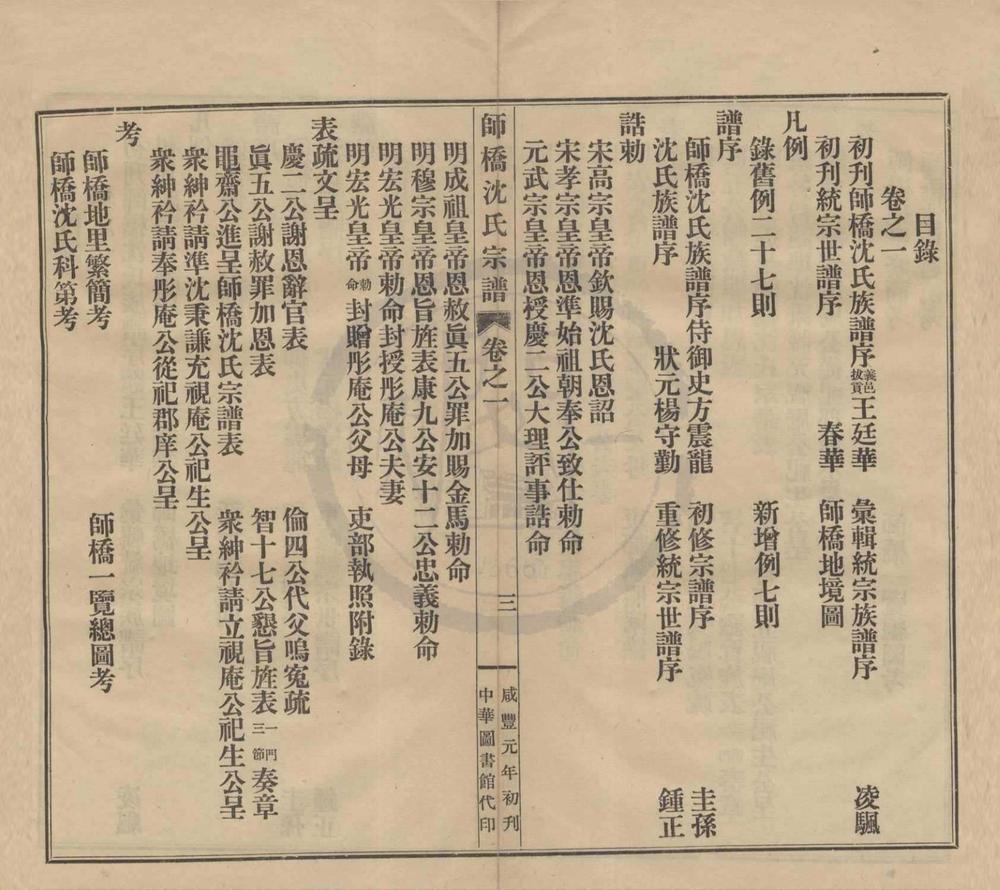 目錄
卷之一
初刊師橋沈氏族譜序 義邑拔貢王廷華 彙輯統宗族譜序 凌颿
初刊統宗世譜序 春華 師橋地境圖
凡例
錄舊例二十七則 新增例七則
譜序
師橋沈氏族譜序侍御史方震龍 初修宗譜序 圭孫
沈氏族譜序 狀元楊守勤 重修統宗世譜序 鍾正
誥勅
宋高宗皇帝欽賜沈氏恩詔
宋孝宗皇帝恩準始祖朝奉公致仕勅命
元武宗皇帝恩授慶二公大理評事誥命
師橋沈氏宗譜 卷之一 三 咸豐元年初刊 中華圖書館代印
明成祖皇帝恩赦眞五公罪加賜金馬勅命
明穆宗皇帝恩旨旌表康九公安十二公忠義勅命
明宏光皇帝勅命封授彤庵公夫妻
明宏光皇帝勅命封贈彤庵公父母 吏部執照附錄
表疏文呈
慶二公謝恩辭官表 倫四公代父嗚冤疏
眞五公謝赦罪加恩表 智十七公懇旨旌表一門三節奏章
黽齋公進呈師橋沈氏宗譜表 衆紳衿請立視庵公祀生公呈
衆紳衿請準沈秉謙充視庵公祀生公呈
衆紳衿請奉彤庵公從祀郡庠公呈
考
師橋地里繁簡考 師橋一覽總圖考
師橋沈氏科第考